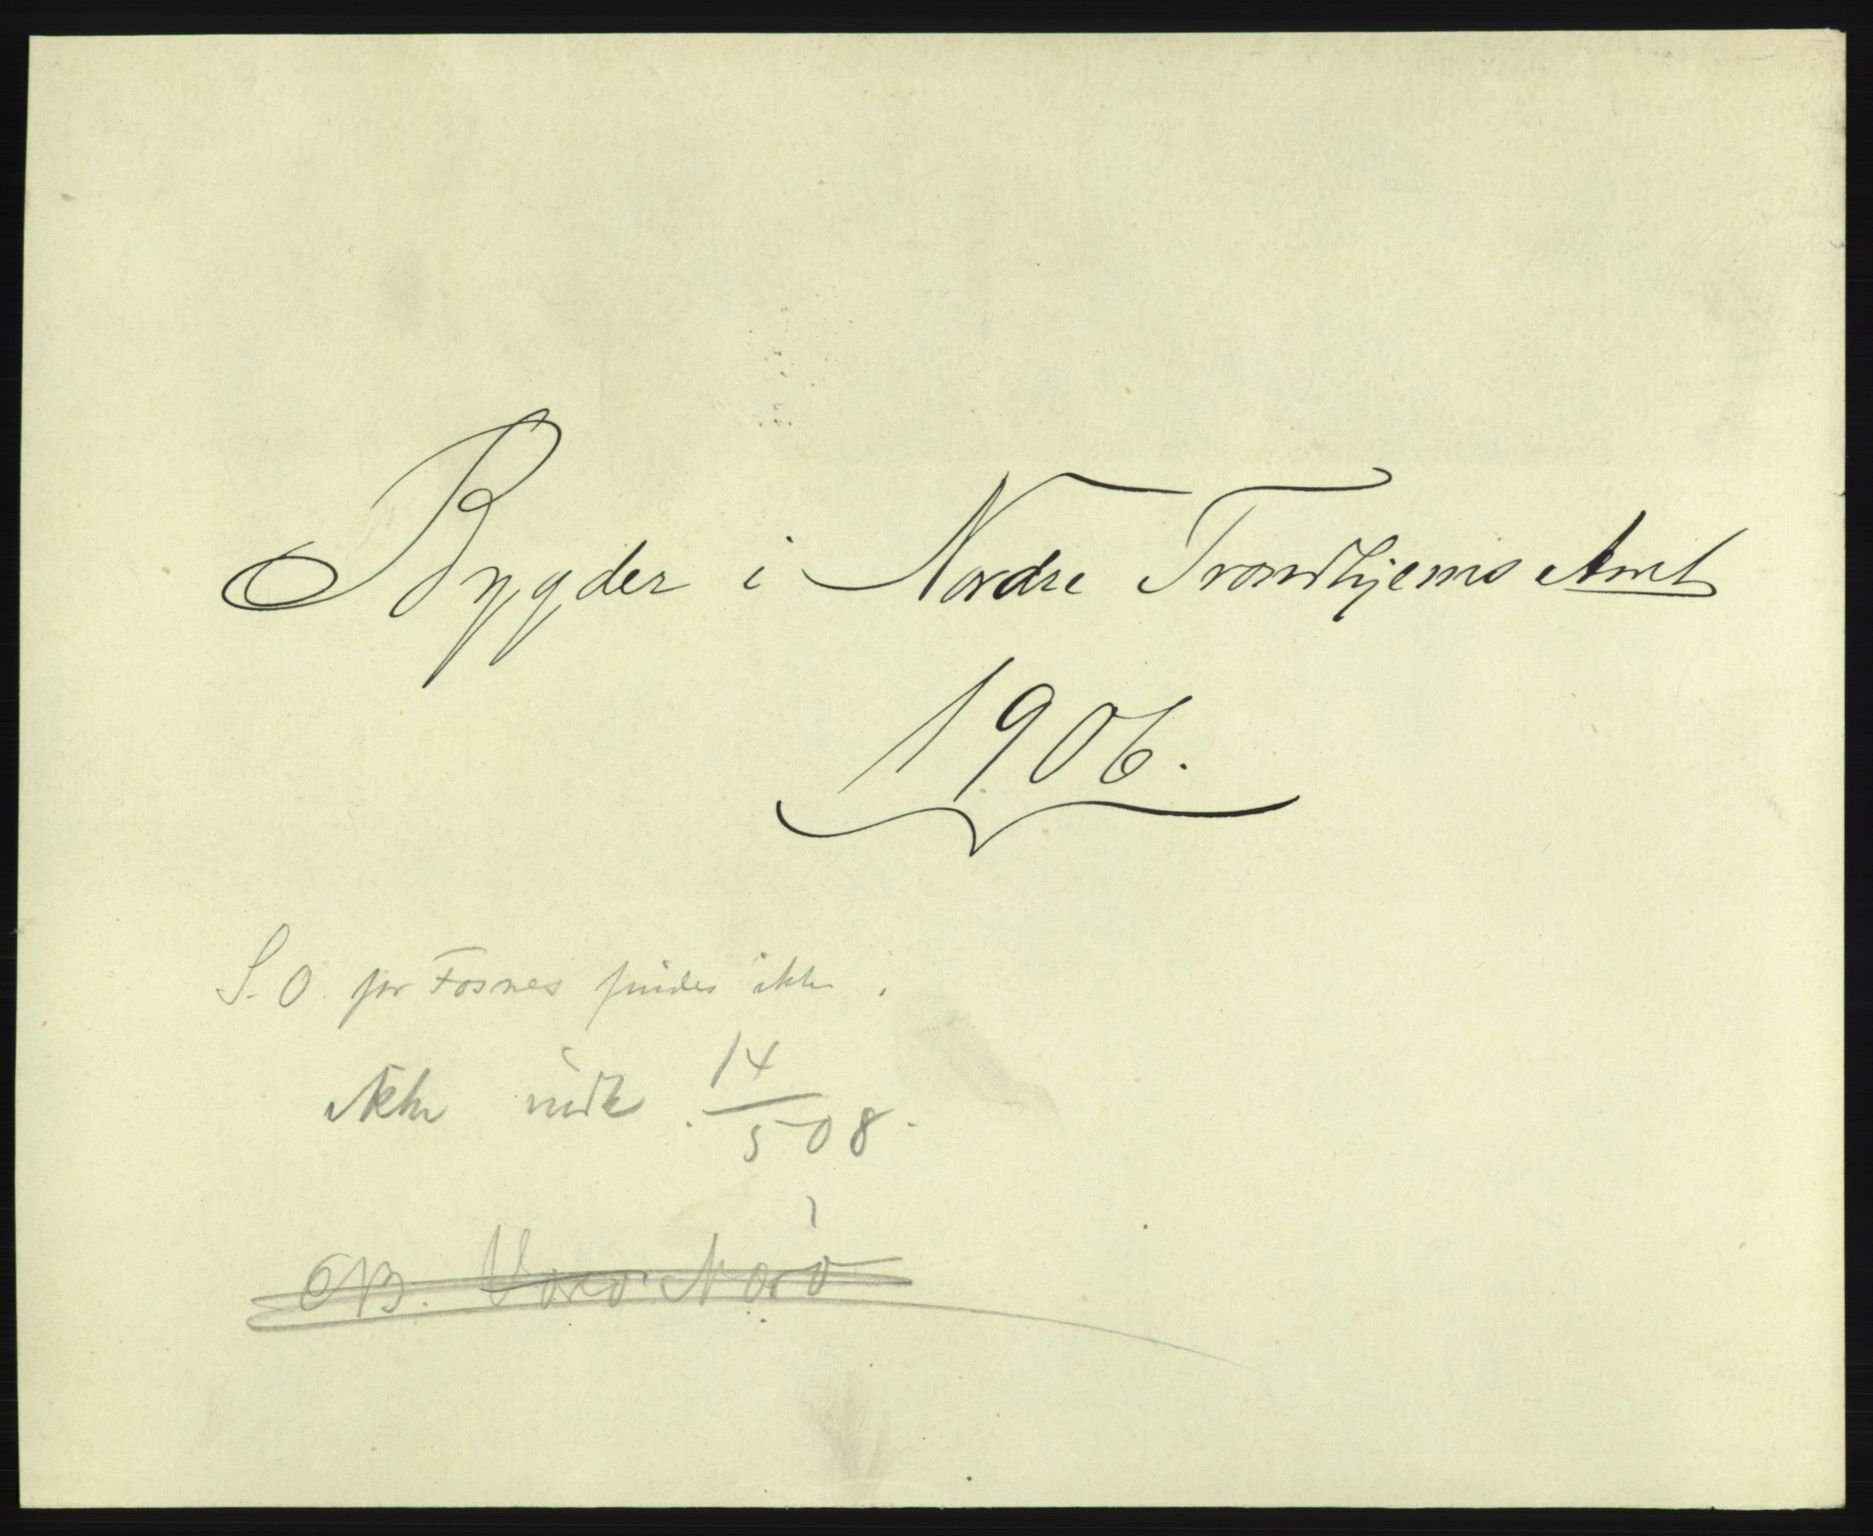 Bygder i Nordre Trondhjems Amt
1906.
S. O. for Fosnes findes ikke.
14/5 08.